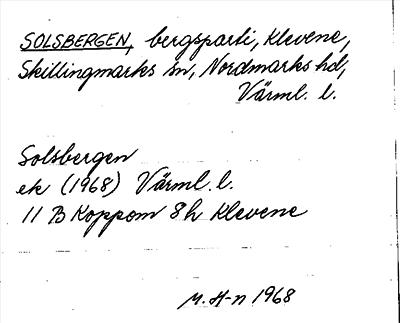 SOLSBERGEN, bergsparti, Klevene,
Skillingmarks sn, Nordmarks hd,
Värml. l.
Solsbergen
ek (1968) Värml. l.
11 B Koppom 8 h Klevene
M. H-n 1968